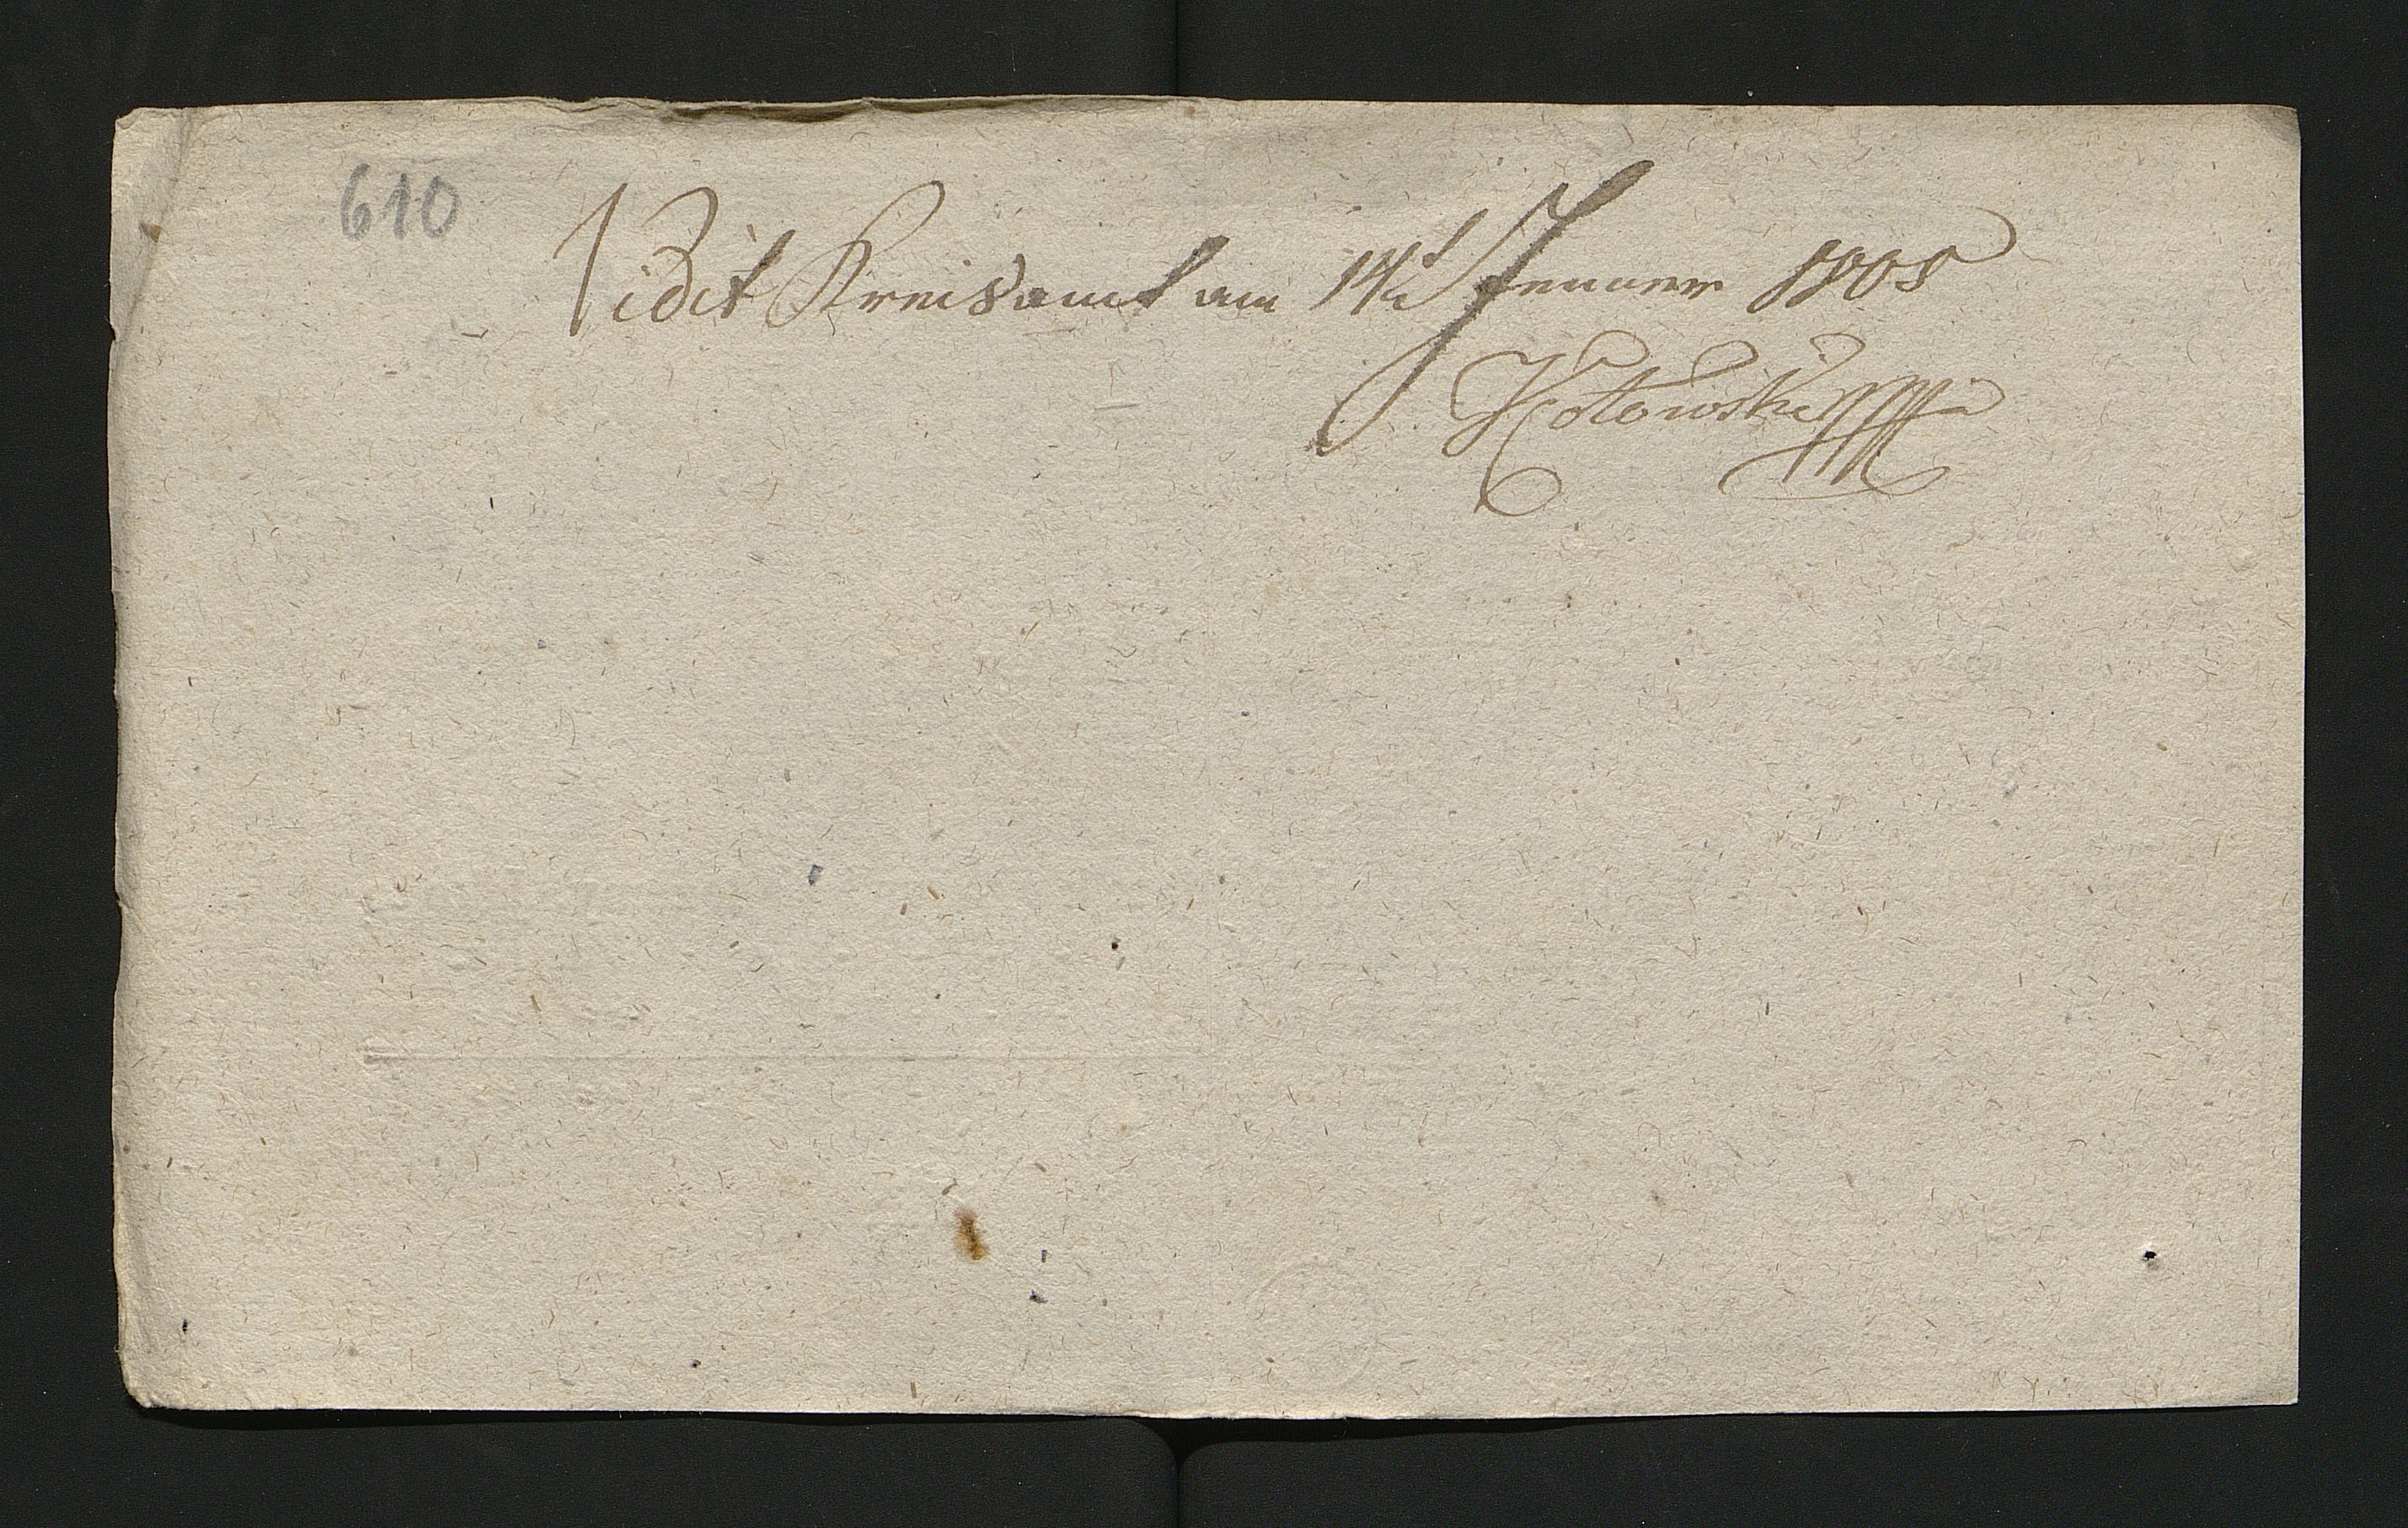 610
Vidit Kreisamt am 14t Jenner 1805
Kotowski